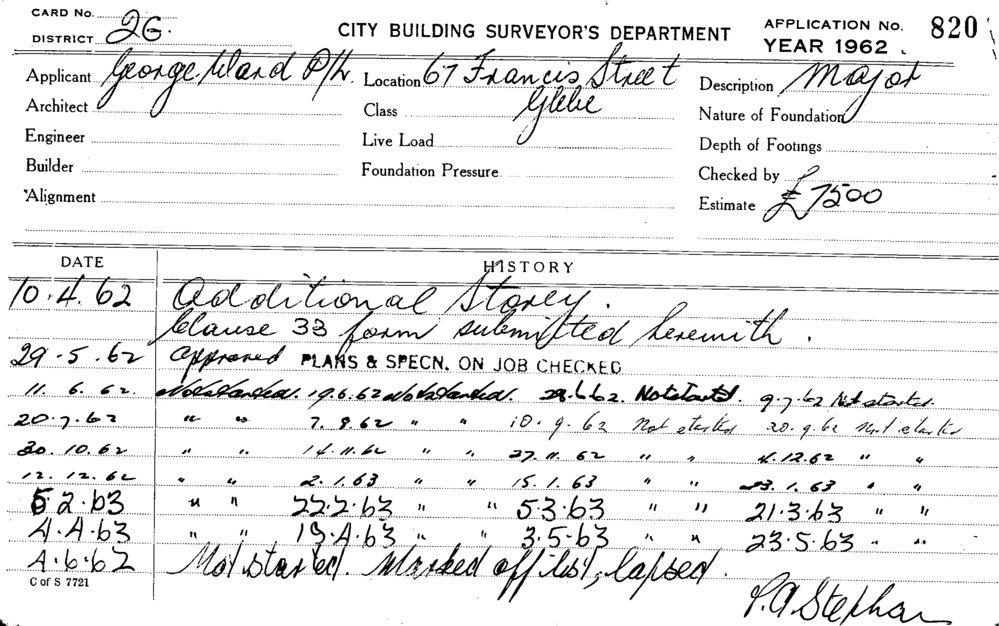 CARD No. 2G. CITY BUILDING SURVEYOR'S DEPARTMENT APPLICATION No. 820
DISTRICT YEAR 1962
Applicant George Ward P/L. Location 67 Francis Street Description Major
Architect Class Glebe Nature of Foundation
Engineer Live Load Depth of Footings
Builder Foundation Pressure Checked by
Alignment Estimate £7500
DATE HISTORY
10.4.62 Additional Storey.
Clause 33 form submitted herewith.
29.5.62 Approved PLANS & SPECN. ON JOB CHECKED
11.6.62. Not started. 19.6.62 Not started. 29.6.62. Not started. 9.7.62 Not started.
20.7.62 " " 7.8.62 " " 10.9.62 Not started 20.9.62 Not started
30.10.62 " " 14.11.62 " " 27.11.62 " " 4.12.62 " "
12.12.62 " " 2.1.63 " " 15.1.63 " " 23.1.63 " "
5.2.63 " " 22.2.63 " " 5.3.63 " " 21.3.63 " "
4.4.63 " " 19.4.63 " " 3.5.63 " " 23.5.63 " "
4.6.63 Not started. Marked off list, lapsed.
C of S 7721
P.A Stephan